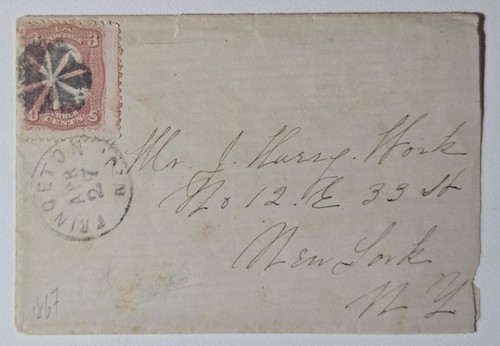 3 U.S. POSTAGE 3
U THREE CENTS S
PRINCETON N.J.
APR
27
Mr. J. Henry. Work
No 12. E 33 St
New York
N Y
1867